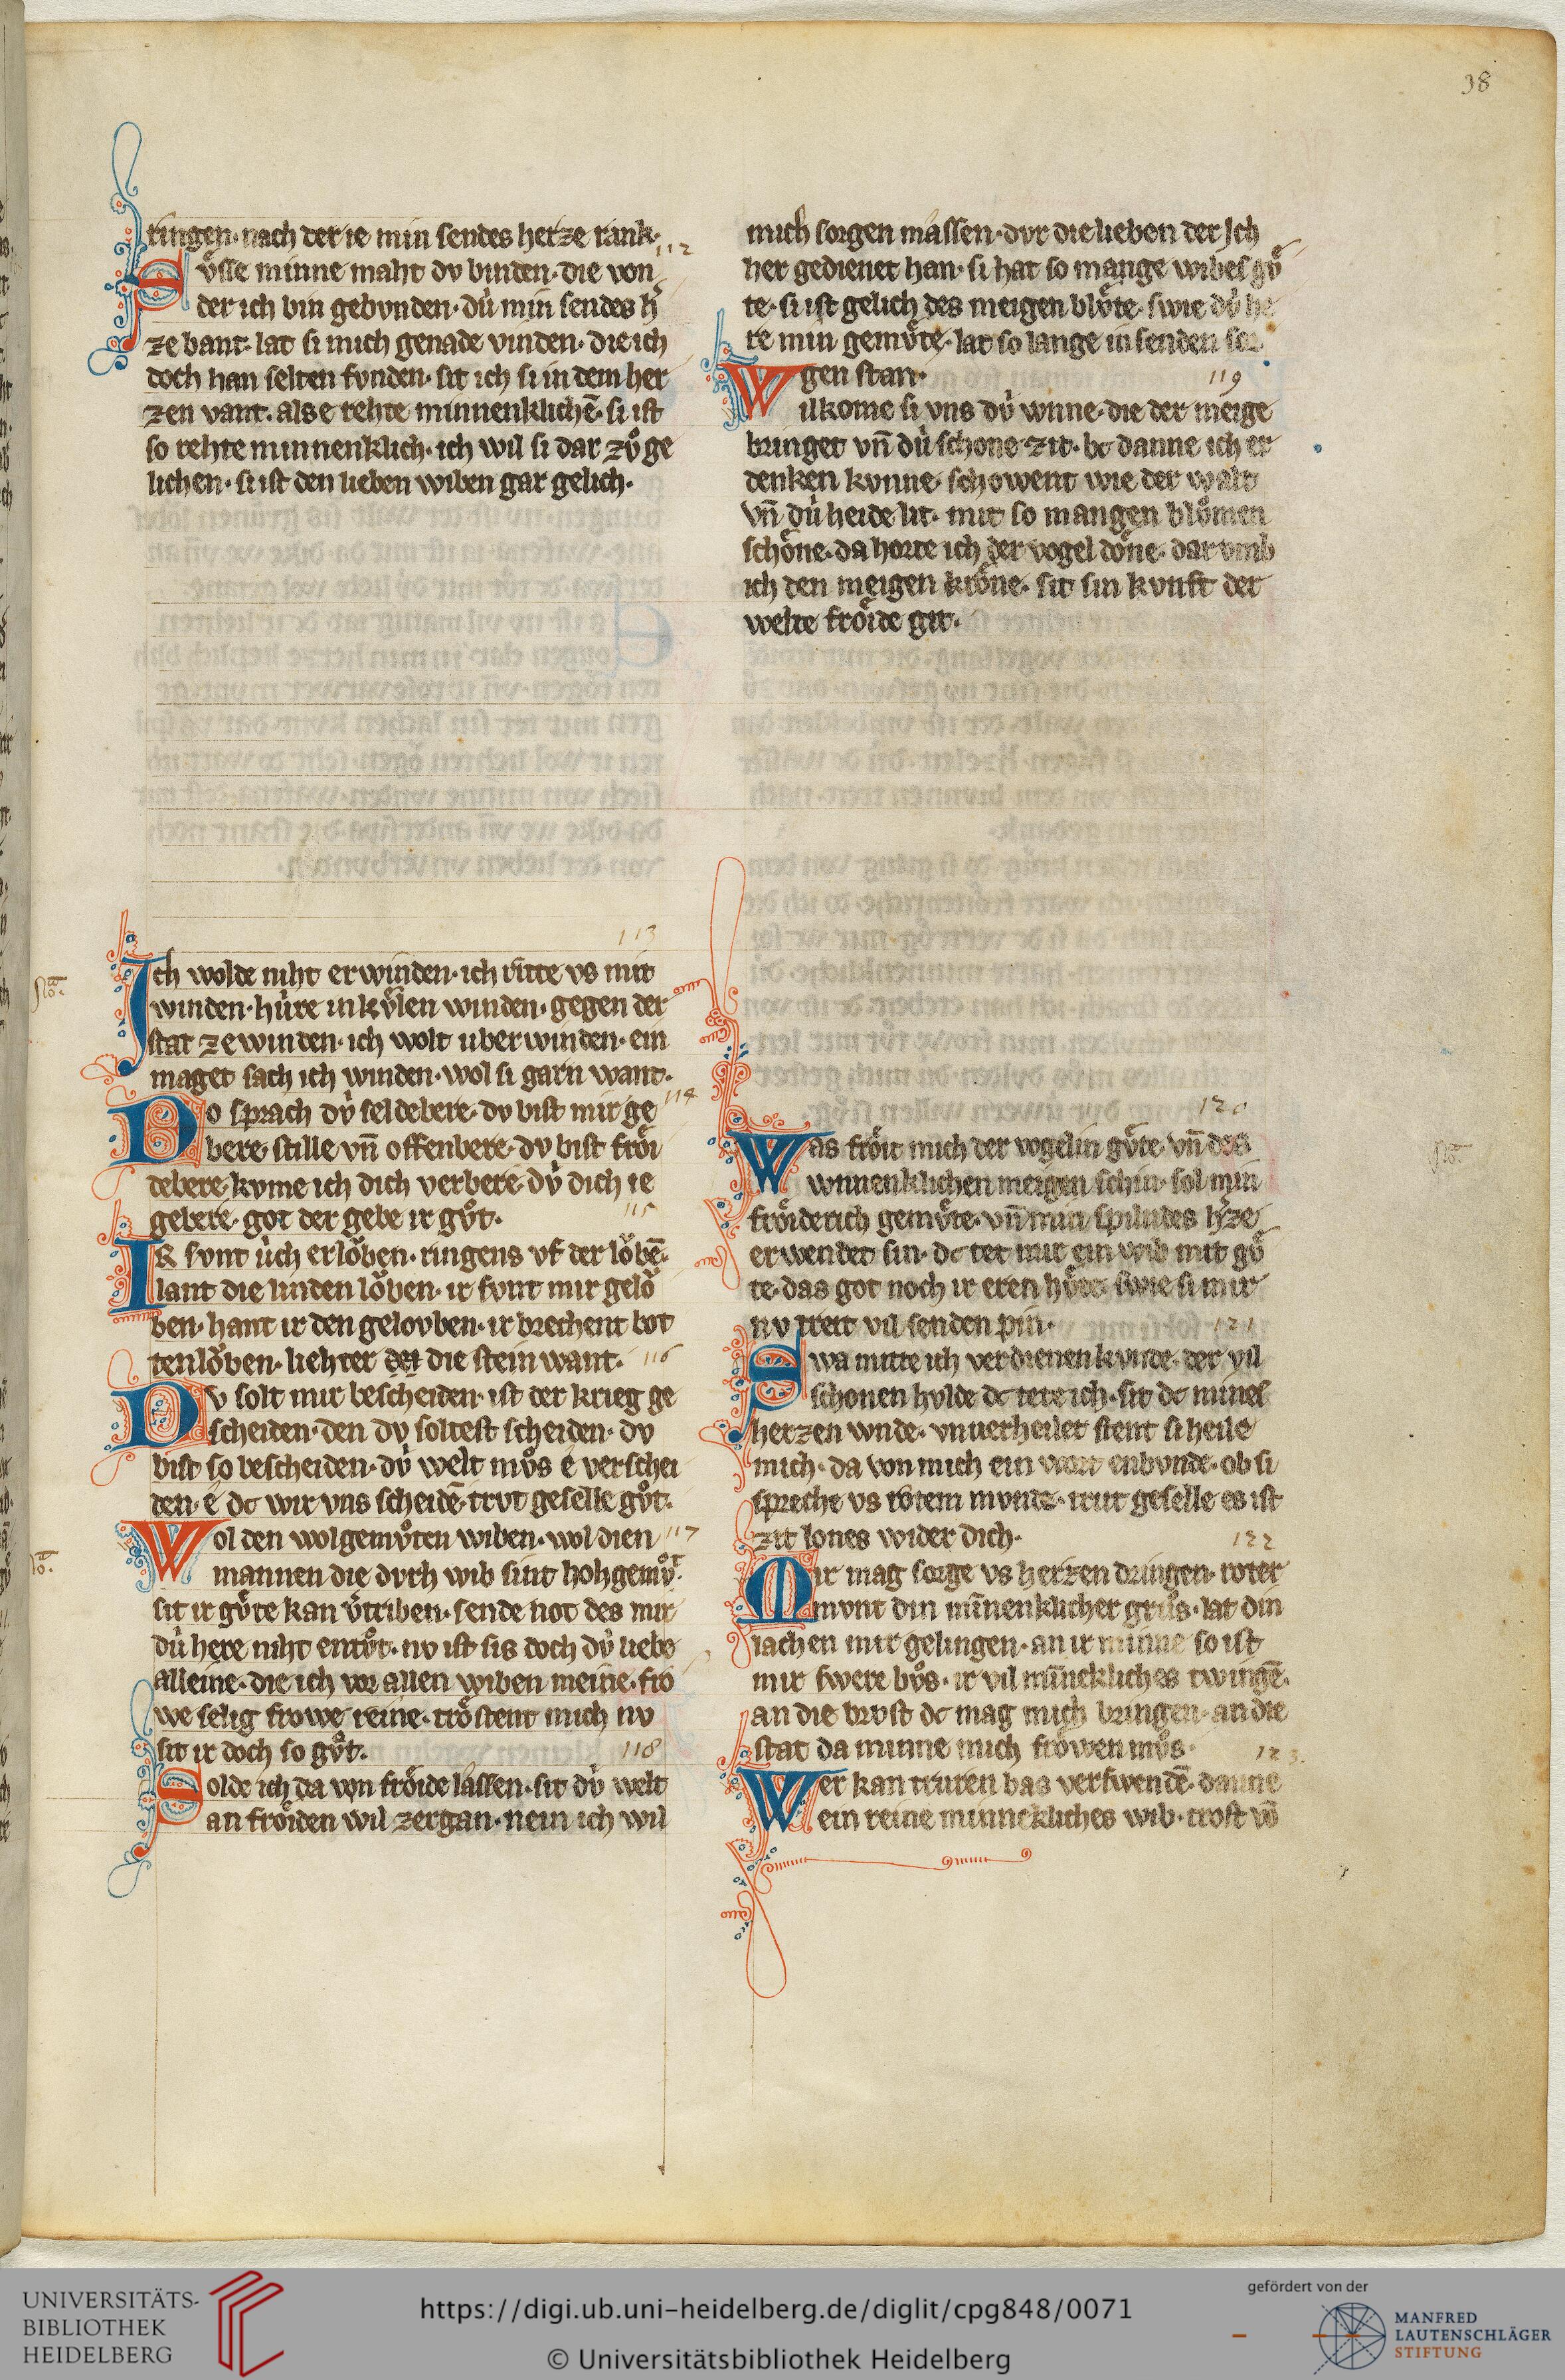 38
ringen· nach der ie min sendes herze rank·
112
Sv̊sse minne maht dv binden· die von
der ich bin gebvnden· dv̍ min sendes h̓
ze bant· lat si mich genade vinden· die ich
doch han selten fvnden· sit ich si in dem her
zen vant· als e rehte minnenklichē· si ist
so rehte minnenklich· ich wil si dar zv̊ ge
lichen· si ist den lieben wiben gar gelich·
113
Ich wolde niht erwinden· ich ritte vs mit
winden· hv̍re in kv̊len winden· gegen der
stat ze winden· ich wolt uber winden· ein
maget sach ich winden· wol si garn want·
114
Do sprach dv̍ seldebere· dv bist mir ge
bere· stille vn̄ offenbere· dv bist frȯi
debere· kvme ich dich verbere· dv̍ dich ie
gebere· got der gebe ir gv̊t·
115
Ir svnt u̍ch erlȯben· ringens vf der lȯbē·
lant die linden lȯben· ir svnt mir gelȯ
ben· hant ir den gelovben· ir brechent bot
tenlȯben· liehter der die stein want·
116
Dv solt mir bescheiden· ist der krieg ge
scheiden· den dv soltest scheiden· dv
bist so bescheiden· dv̍ welt mv̊s e verschei
den· e dc wir vns scheidē· trvt geselle gv̊t·
117
Wol den wolgemv̊ten wiben· wol dien
mannen die dvrh wib sint hohgemv̊t·
sit ir gv̊te kan v̓triben· sende not des mir
dv̍ here niht entv̊t· nv ist sis doch dv̍ liebe
alleine· die ich vor allen wiben meine· fro
we selig frowe reine· trȯstent mich nv
sit ir doch so gv̊t·
118
Solde ich da von frȯide lassen· sit dv̍ welt
an frȯiden wil zergan· nein ich wil
mich sorgen massen· dvr die lieben der Ich
her gedienet han· si hat so mange wibes gv̊
te· si ist gelich des meigen blv̊te· swie dv̍ he
re min gemv̊te· lat so lange in senden sor
gen stan·
119
Wilkome si vns dv̍ wnne· die der meige
bringet vn̄ dv̍ schone zit· bc danne ich er
denken kvnne· schowent wie der walt
vn̄ dv̍ heide lit· mit so mangen blv̊men
schȯne· da horte ich der vogel dȯne· dar vmb
ich den meigen krȯne· sit sin kvnft der
welte frȯide git·
120
Was frȯit mich der vogelin gv̊te· vn̄ des
wnnenklichen meigen schin· sol min
frȯiderich gemv̊te· vn̄ min spilndes h̓ze
erwendet sin· dc tet mir ein wib mit gv̊
te· das got noch ir eren hv̊te· swie si mir
nv treit vil senden pin·
121
Swa mitte ich verdienen kvnde· der vil
schonen hvlde dc tete ich· sit dc mines
herzen wnde· vnuerheilet stent si heile
mich· da von mich ein wort enbvnde· ob si
spreche vs rotem mvnde· trut geselle es ist
zit lones wider dich·
122
Mir mag sorge vs herzen dringen· roter
mvnt din mīnenklicher grv̊s· lat din
lachen mir gelingen· an ir minne so ist
mir swere bv̊s· ir vil mīneklīches twingē·
an die brvst dc mag mich bringen· an die
stat da minne mich frȯwen mv̊s·
123
Wer kan truren bas verswendē· danne
ein reine minnekliches wib· trost vō
UNIVERSITÄTS-
BIBLIOTHEK
HEIDELBERG
https://digi.ub.uni-heidelberg.de/diglit/cpg848/0071
© Universitätsbibliothek Heidelberg
gefördert von der
MANFRED
LAUTENSCHLÄGER
STIFTUNG